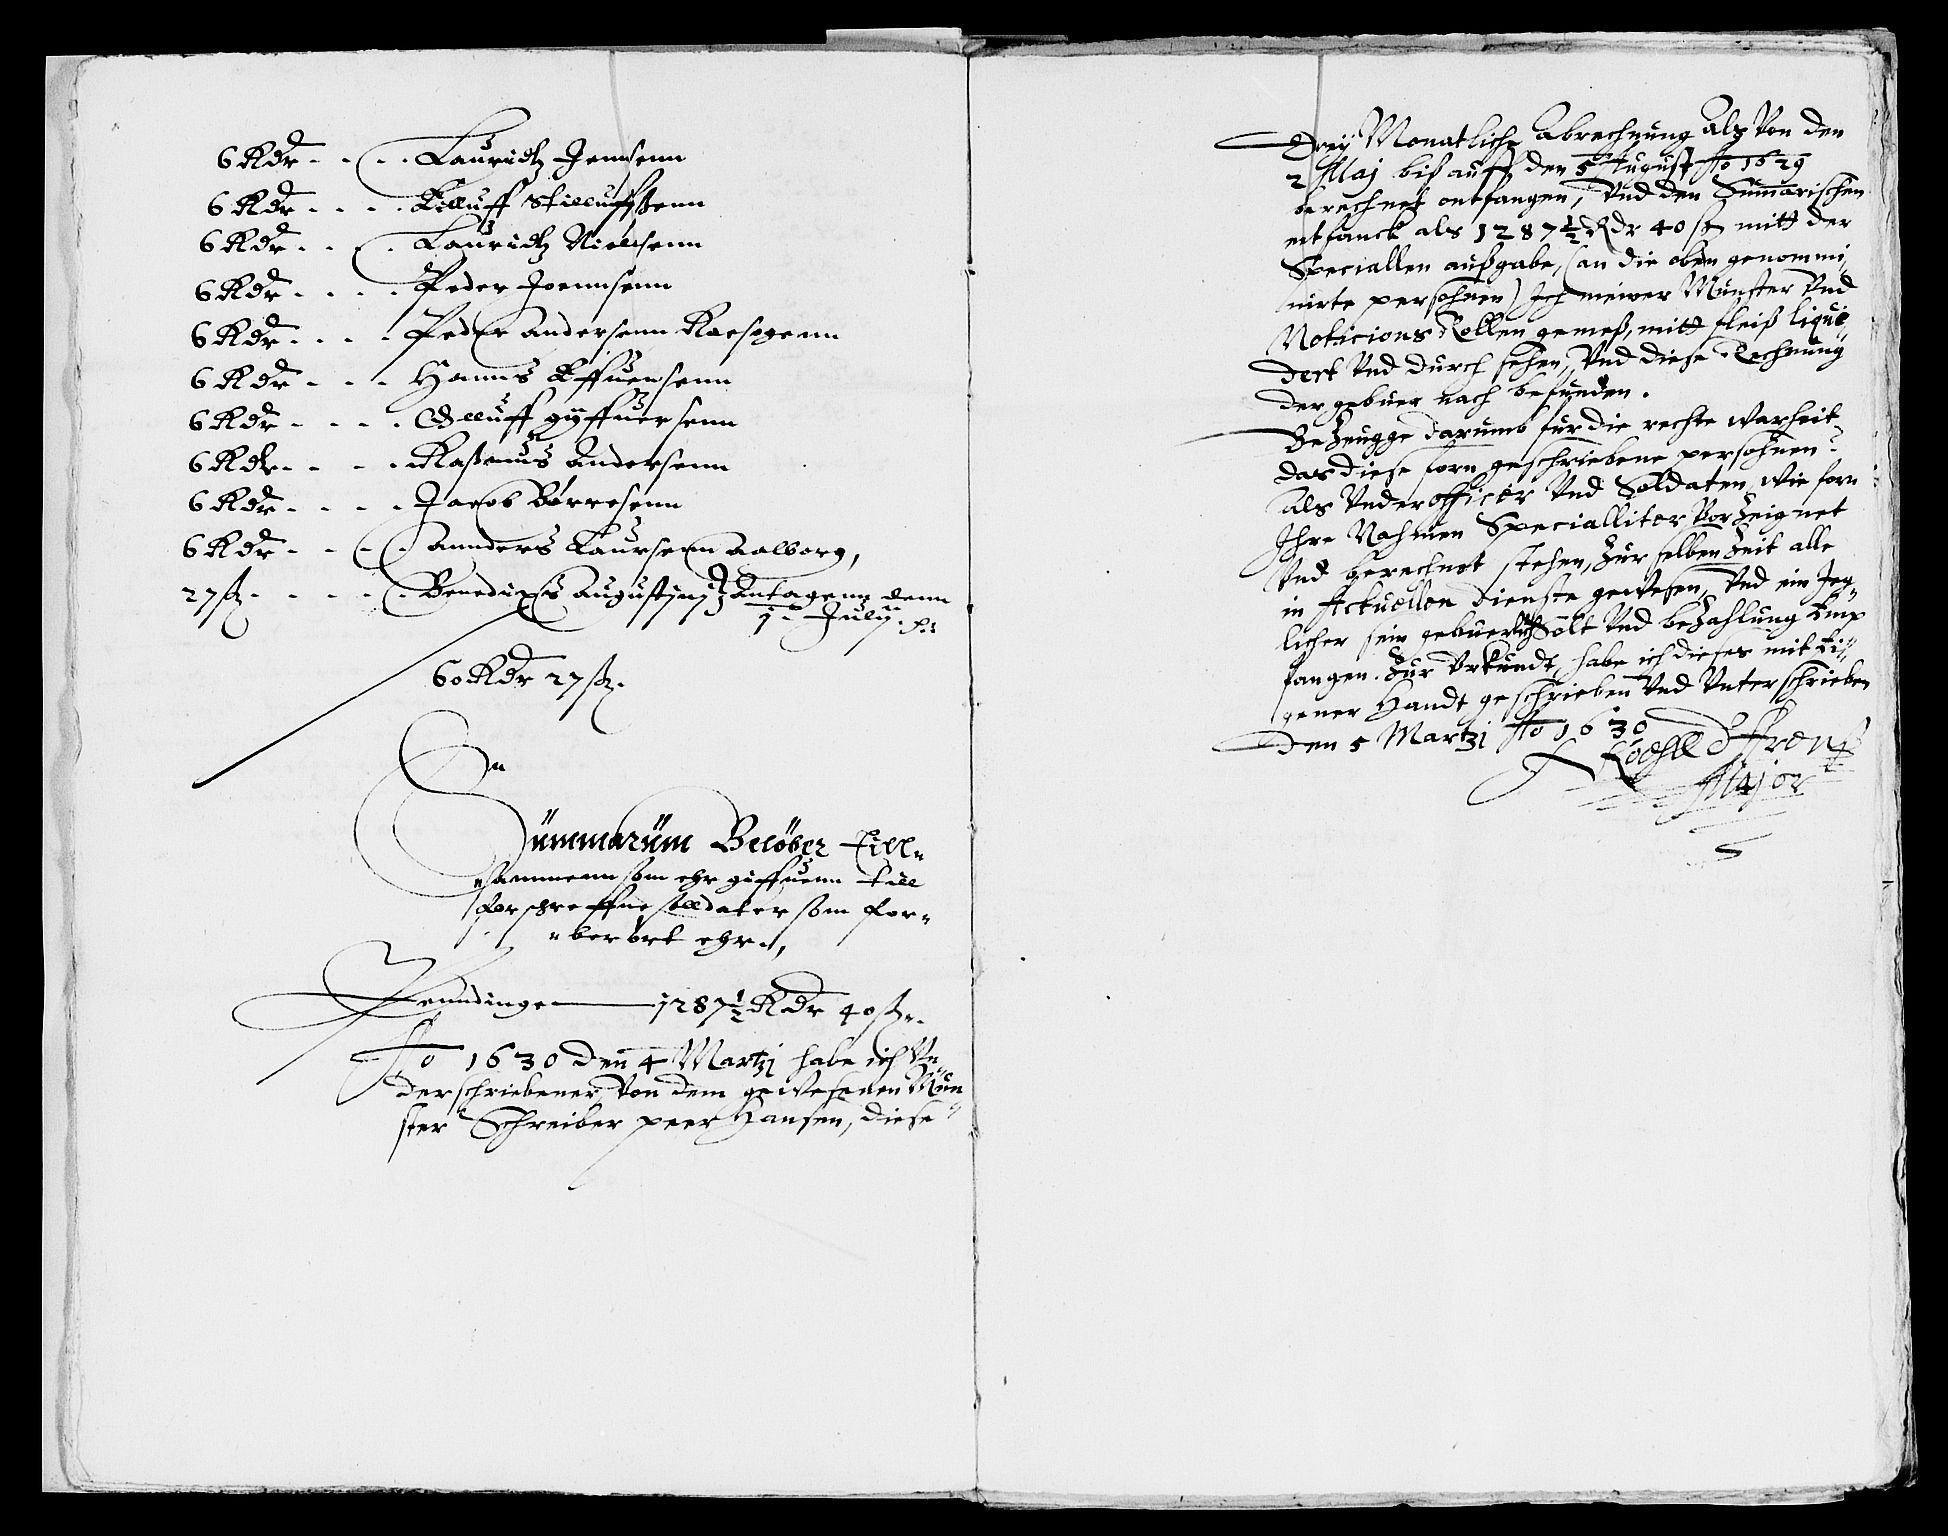 6 Rdr - - - Lauridtz Jennsenn
6 Rdr - - - - Elluff Stelluffßenn
6 Rdr - - - Lauridtz Nielsenn
6 Rdr - - - - Peder Joennsenn
6 Rdr - - - - Peder Andersenn
6 Rdr - - - - Hanns Effuensenn
6 Rdr - - - - Oelluff gyffuersenn
6 Rdr - - - - Raßmus Andersenn
6 Rdr - - - - Jacob Børresenn
6 Rdr - - - - Annders Laursenn Aalborg,
27 ß - - - - Benedix Augustinj Antagenn denn
1 Julij
60 Rdr 27 ß.
Summarum Beløber till-
sammenn som ehr giffuenn till
forschreffne solldater som for-
berørt ehr.,
Penndinge — 1287½ Rdr 40 ß.
Ao 1630 den 4 Martzi habe ich Vn
derschriebener, Von dem gewesenen Mün
ster Schreiber peer Hansen, diese
Dreÿ Monatliche Abrechnung alß Von den
2 Maj biß auff den 5 August Ao 1629
berechnet entfangen, Vnd den Summarischen
entfanck als 1287½ Rdr 40 ß mitt der
Speciallen außgabe, (an die oben genommi,
nirte persohnen) Ich meiner Münster Vnd
Noticions Rollen gemeß, mitt fleiß liqui,
dert Vnd durch sehen, Vnd diese Rechnung
der gebuer nach befunden.
Bezeugge darumb für die rechte warheit
das diese forn geschriebene persohnen
als Vnderofficer Vnd Soldaten, wie forn
Ihre Nahmen Speciallitor Vorzeignet
Vnd berechnet stehen, zur selben Zeit alle
in Actuellen dienste gewesen, Vnd ein Jeg,
licher sein gebuerlich Solt Vnd bezahlung Emp
fangen. Zur Vrkundt, habe ich dieses mit Ei,
gener Handt geschrieben Vnd Vnterschrieben
Den 5 Martzj Ao 1630
Major